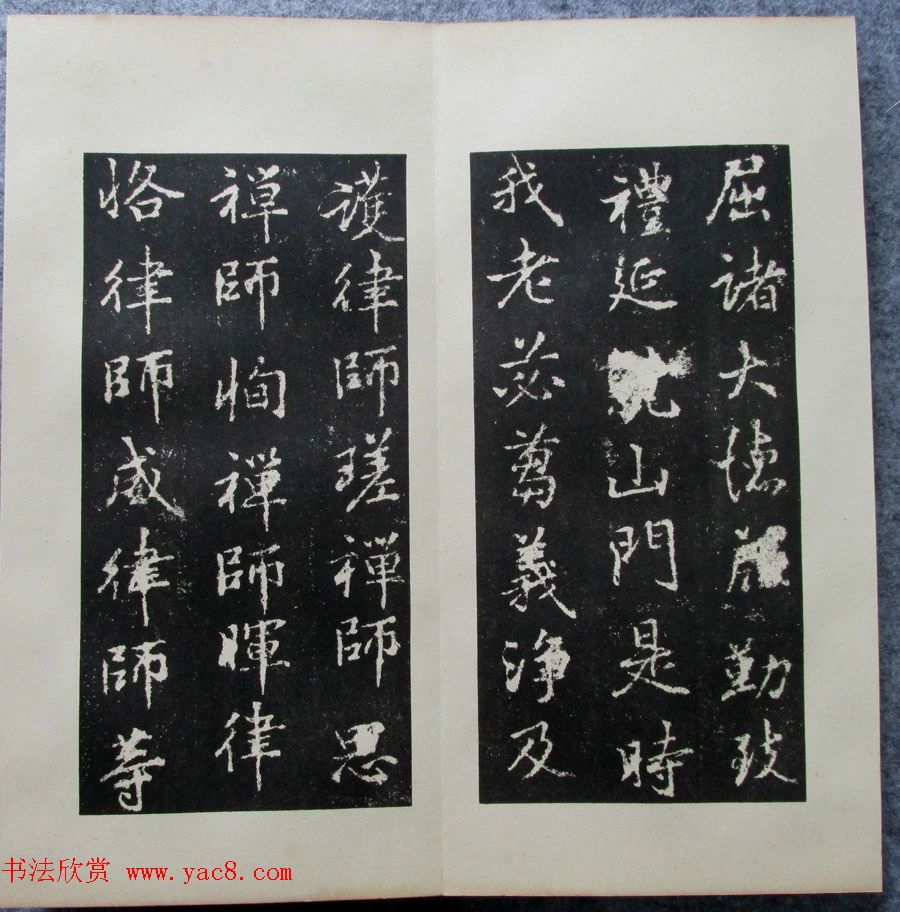 屈諸大德勤致
禮延山門是時
我老苾蒭義淨及
護律師瑳禪師思
禪師恂禪師暉律
恪律師威律師等
书法欣赏 www.yac8.com